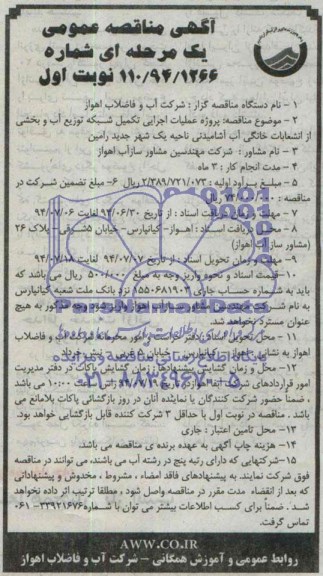 آگهی مناقصه عمومی
یک مرحله ای شماره
۱۱۰/۹۴/۱۲۶۶ نوبت اول
۱ – نام دستگاه مناقصه گزار : شرکت آب و فاضلاب اهواز
۲ – موضوع مناقصه: پروژه عملیات اجرایی تکمیل شبکه توزیع آب و بخشی
از انشعابات خانگی آب آشامیدنی ناحیه یک شهر جدید رامین
۳ – نام مشاور : شرکت مهندسین مشاور سازآب اهواز
۴ – مدت انجام کار : ۳ ماه
۵ – مبلغ برآورد اولیه : ۲/۳۸۹/۷۲۱/۰۷۳ ریال ۶- مبلغ تضمین شرکت در
مناقصه :
۷ – مهلت و زمان دریافت اسناد : از تاریخ ۹۴/۰۶/۳۰ لغایت ۹۴/۰۷/۰۶
۸ – محل دریافت اسناد : اهواز- کیانپارس- خیابان ۵شرقی- پلاک ۲۶
(مشاور سازآب اهواز)
۹ – مهلت و زمان تحویل اسناد : از تاریخ ۹۴/۰۷/۰۷ لغایت ۹۴/۰۷/۱۸
۱۰ – قیمت اسناد و نحوه واریز وجه به مبلغ ۵۰۰/۰۰۰ ریال می باشد که
باید به شماره حساب جاری ۱۵۵۰۶۸۱۹۰۳ نزد بانک ملت شعبه کیانپارس
به نام شرکت مهندسین مشاور سازآب اهواز واریز شود وجه مذکور به هیچ
عنوان مسترد نخواهد شد.
۱۱ – محل تحویل اسناد: دفتر حراست و امور محرمانه شرکت آب و فاضلاب
اهواز به نشانی اهواز- کیانپارس- خیابان
۱۲ – محل و زمان گشایش پیشنهادها: زمان گشایش پاکات در دفتر مدیریت
امور قراردادهای شرکت ساعت ۱۰:۰۰ می باشد
، ضمناً حضور شرکت کنندگان یا نماینده آنان در روز بازگشایی پاکات بلامانع می
باشد . مناقصه در نوبت اول با حداقل ۳ شرکت کننده قابل بازگشایی خواهد بود.
۱۳ – محل تامین اعتبار : جاری
۱۴ – هزینه چاپ آگهی به عهده برنده ی مناقصه می باشد.
۱۵ –شرکتهایی که دارای رتبه پنج در رشته آب می باشند، می توانند در مناقصه
فوق شرکت نمایند. به پیشنهادهای فاقد امضاء ، مشروط ، مخدوش و پیشنهاداتی
که بعد از انقضاء مدت مقرر در مناقصه واصل شود ، مطلقا ترتیب اثر داده نخواهد
شد. ضمنا برای کسب اطلاعات بیشتر می توان با شماره ۳۳۹۲۱۶۷۶-۰۶۱
تماس گرفت.
AWW.CO.IR
روابط عمومی و آموزش همگانی – شرکت آب و فاضلاب اهواز
ParsNamadData